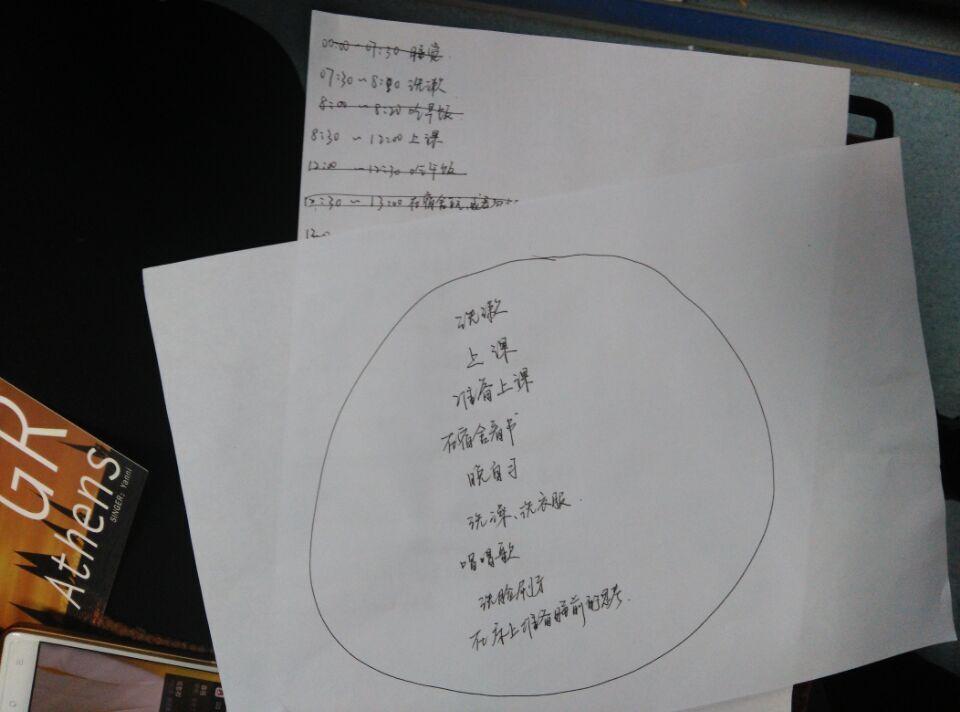 00:00~07:30 睡觉.
07:30~8:00 洗漱
8:00~8:20 吃早饭
8:30~12:00 上课
12:00~12:30 吃午饭
12:30~13:00 在宿舍
洗漱
上课
准备上课
在宿舍看书
晚自习
洗澡、洗衣服.
唱唱歌
洗脸刷牙
在床上准备睡前的思考.
GR
Athens
SINGER: Yanni